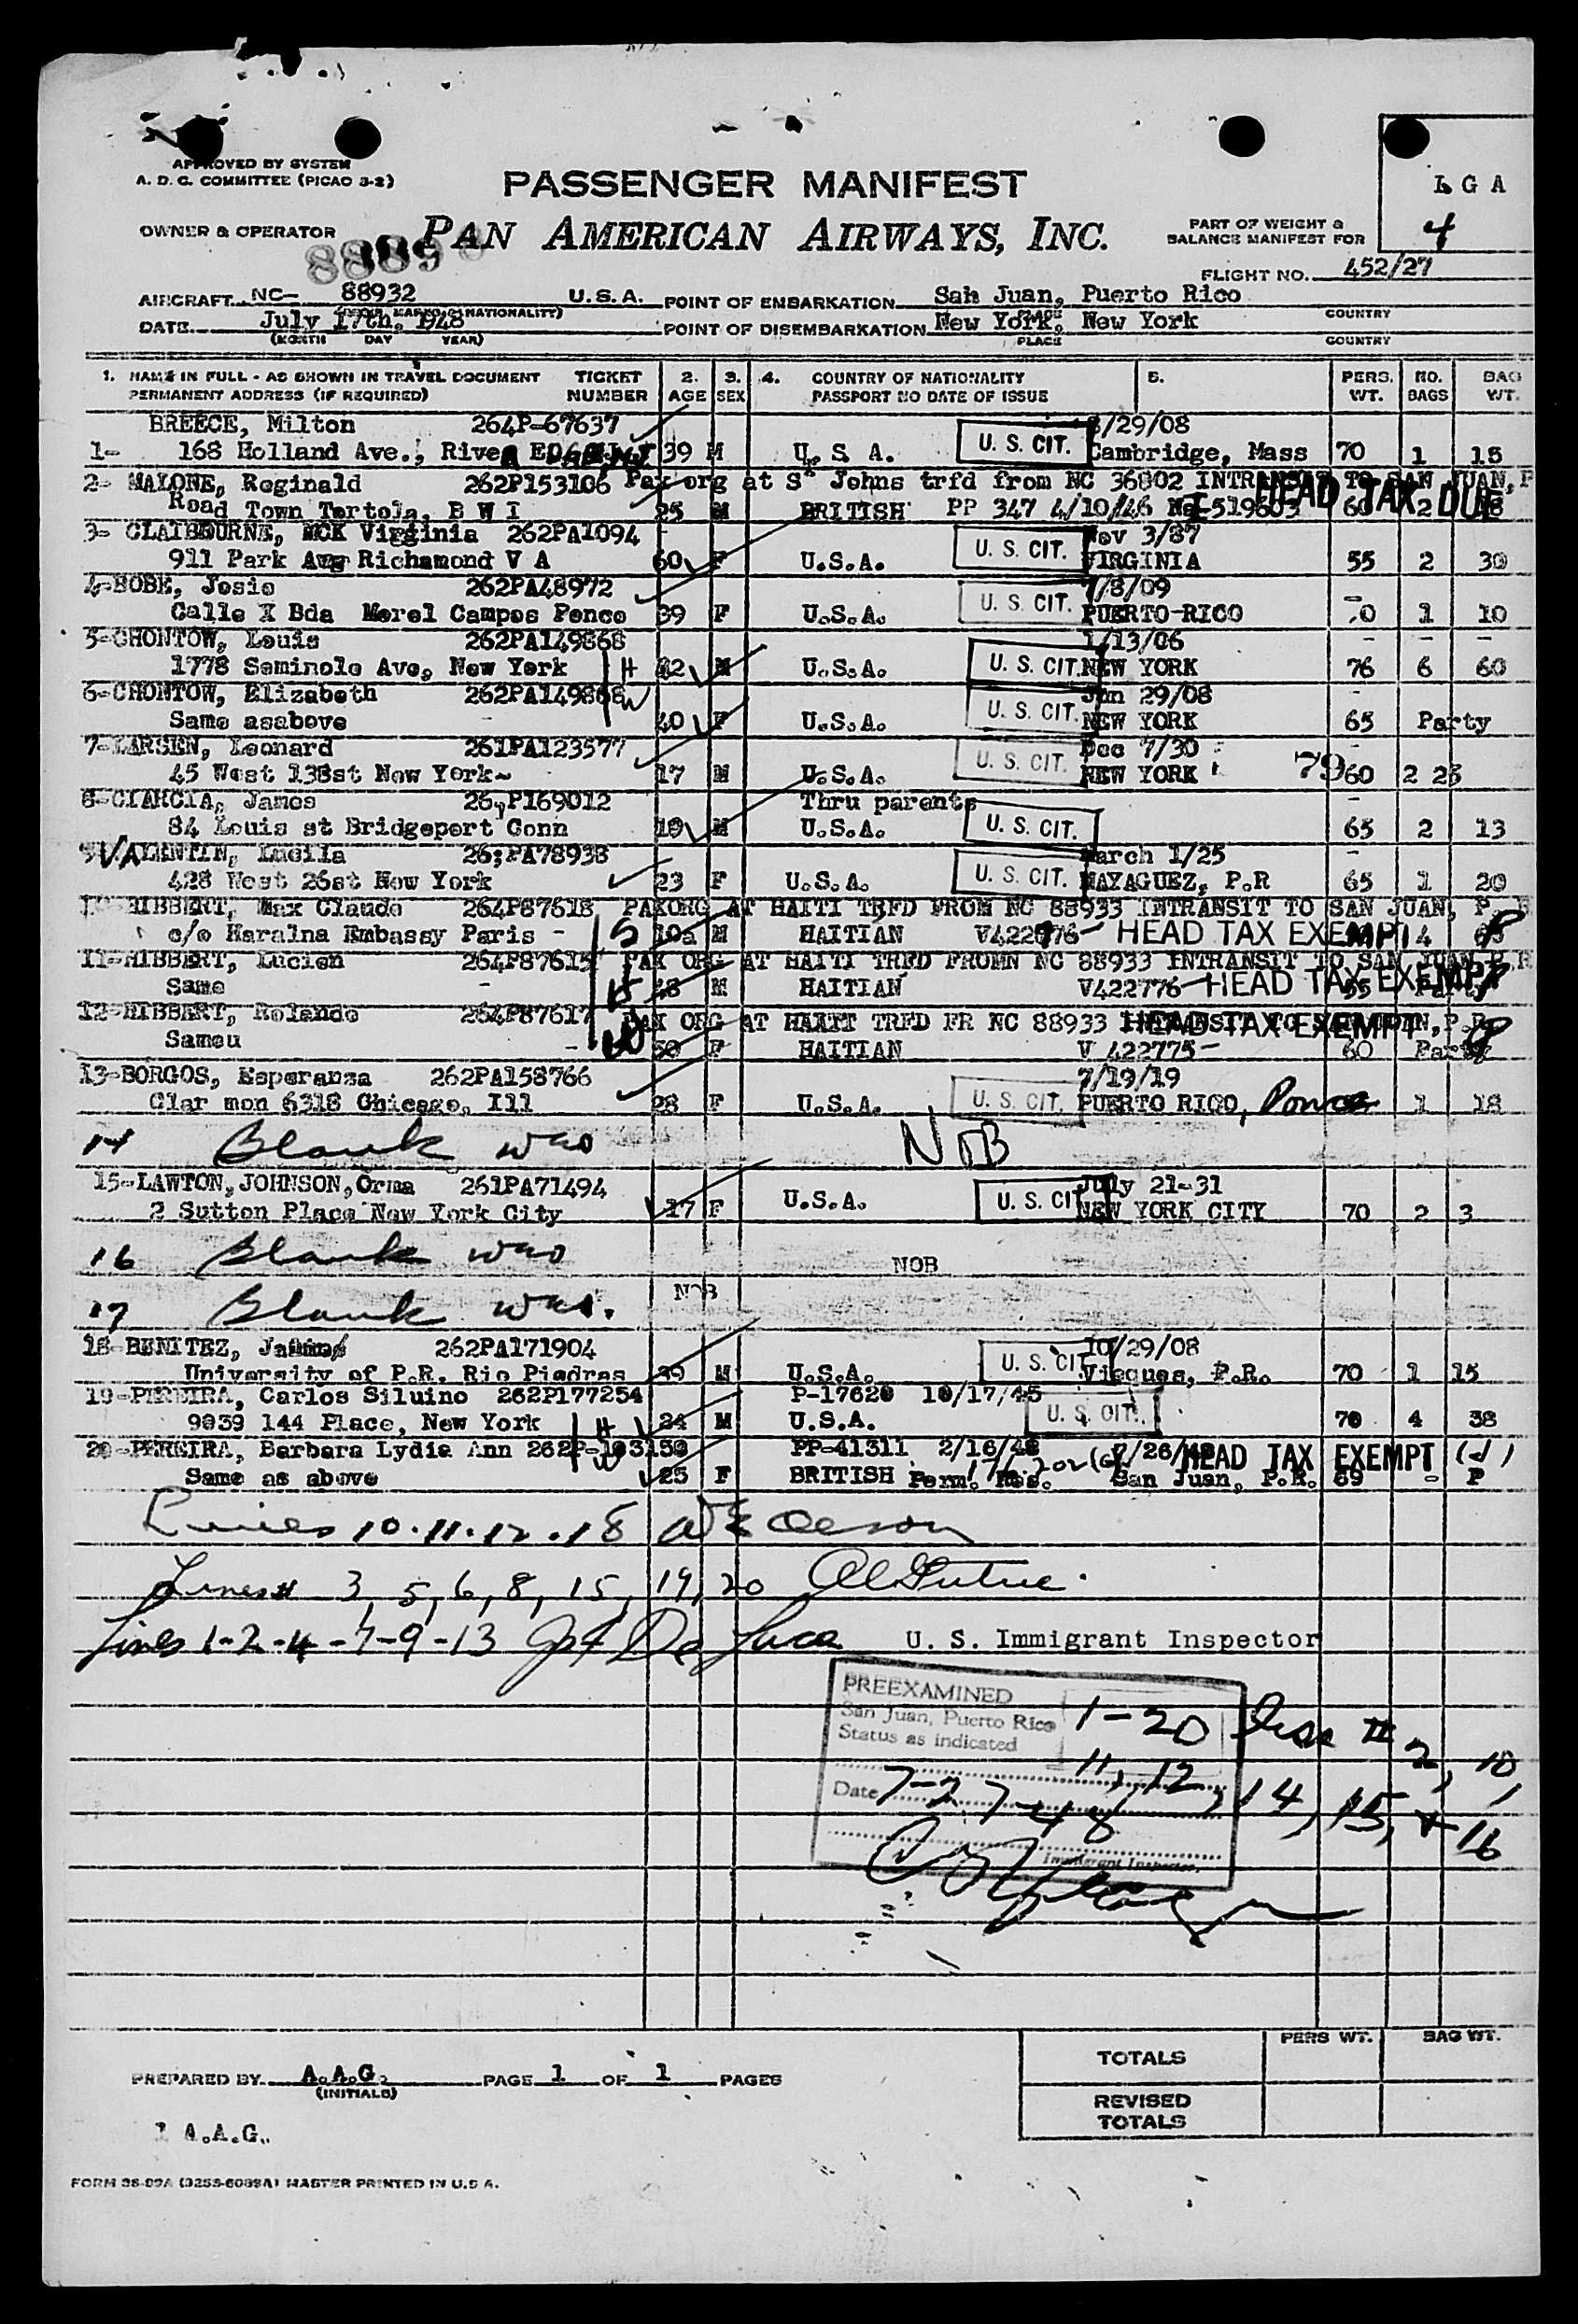 APPROVED BY SYSTEM
A. D. C. COMMITTEE (PICAO 3-2)
PASSENGER MANIFEST
L G A
4
OWNER & OPERATOR
PAN AMERICAN AIRWAYS, INC.
PART OF WEIGHT &
BALANCE MANIFEST FOR
8889
FLIGHT NO. 452/27
AIRCRAFT NC- 88932 U.S.A. POINT OF EMBARKATION San Juan, Puerto Rico
DATE July 17th, 1948 POINT OF DISEMBARKATION New York, New York
(MONTH DAY YEAR) PLACE COUNTRY
1. NAME IN FULL - AS SHOWN IN TRAVEL DOCUMENT TICKET 2. 3. 4. COUNTRY OF NATIONALITY 5. PERS. NO. BAG
PERMANENT ADDRESS (IF REQUIRED) NUMBER AGE SEX PASSPORT NO DATE OF ISSUE WT. BAGS WT.
BREECE, Milton 264P-67637 /29/08
1- 168 Holland Ave., River 39 M U.S.A. U. S. CIT. Cambridge, Mass 70 1 15
2- MALONE, Reginald 262P153106 Pax org at St Johns trfd from NC 36802 INTRANSIT TO SAN JUAN, P
Road Town Tortola, B W I 25 M BRITISH PP 347 4/10/46 519603 HEAD TAX DUE 60 2
3- CLAIBOURNE, MCK Virginia 262PA1094 Nov 3/87
911 Park Ave Richamond V A 60 F U.S.A. U. S. CIT. VIRGINIA 55 2 30
4-BOBE, Josie 262PA48972 7/8/09
Calle X Bda Morel Campos Ponce 39 F U.S.A. U. S. CIT. PUERTO-RICO 1 10
5-CHONTOW, Louis 262PA149868 1/13/06
1778 Seminole Ave, New York H 42 M U.S.A. U. S. CIT. NEW YORK 76 6 60
6-CHONTOW, Elizabeth 262PA149868 Jun 29/08
Same asabove W 40 F U.S.A. U. S. CIT. NEW YORK 65 Party
7-LARSEN, Leonard 261PA123577 Dec 7/30
45 West 138st New York 17 M U.S.A. U. S. CIT. NEW YORK 79 60 2 25
8-CIARCIA, James P169012 Thru parents
84 Louis st Bridgeport Conn 19 M U.S.A. U. S. CIT. 65 2 13
9 VALENTIN, Lucila PA78938 March 1/25
428 West 26st New York 23 F U.S.A. U. S. CIT. MAYAGUEZ, P.R 65 1 20
HIBBERT, Max Claude 264P87618 PAXORG AT HAITI TRFD FROM NC 88933 INTRANSIT TO SAN JUAN, P. R
c/o Haraina Embassy Paris - S 10a M HAITIAN HEAD TAX EXEMPT 4
11-HIBBERT, Lucien 264P87615 PAX ORG AT HAITI TRFD FROMN NC 88933 INTRANSIT TO SAN JUAN P.R
Same - H 48 M HAITIAN V422776 HEAD TAX EXEMPT 55 Party
12-HIBBERT, Rolande 264P87617 PAX ORG AT HAITI TRFD FR NC 88933 HEAD TAX EXEMPT P.R
Sameu - W 50 F HAITIAN V 422775- 60 Party
13-BORGOS, Esperanza 262PA158766 7/19/19
Clar mon 6318 Chicago, Ill 28 F U.S.A. U. S. CIT. PUERTO RICO, Ponce 1 18
14 Blank NOB
15-LAWTON, JOHNSON, Orma 261PA71494 July 21-31
2 Sutton Place New York City 17 F U.S.A. U. S. CIT NEW YORK CITY 70 2 3
16 Blank NOB
17 Blank NOB
18-BENITEZ, 262PA171904 10/29/08
University of P.R. Rio Piedras 39 M U.S.A. U. S. CIT Vieques, P.R. 70 1 15
19-PEREIRA, Carlos Siluino 262P177254 P-17620 10/17/45
9039 144 Place, New York H 24 M U.S.A. U. S. CIT. 70 4 38
20-PEREIRA, Barbara Lydia Ann PP-41311 2/16/48 HEAD TAX EXEMPT (d)
Same as above 25 F BRITISH Perm. Res. San Juan, P.R. 69 - P
Lines 10.11.12.18
Lines 3, 5, 6, 8, 15, 19, 20
Lines 1-2-4-7-9-13 De Luca U. S. Immigrant Inspector
PREEXAMINED
San Juan, Puerto Rico
Status as indicated
1-20 less # 2, 10,
11, 12, 14, 15, + 16
Date 7-27-48
Immigrant Inspector.
PERS WT. BAG WT.
TOTALS
PREPARED BY A.A.G. PAGE 1 OF 1 PAGES
(INITIALS)
REVISED
TOTALS
1 A.A.G.
MASTER PRINTED IN U.S A.